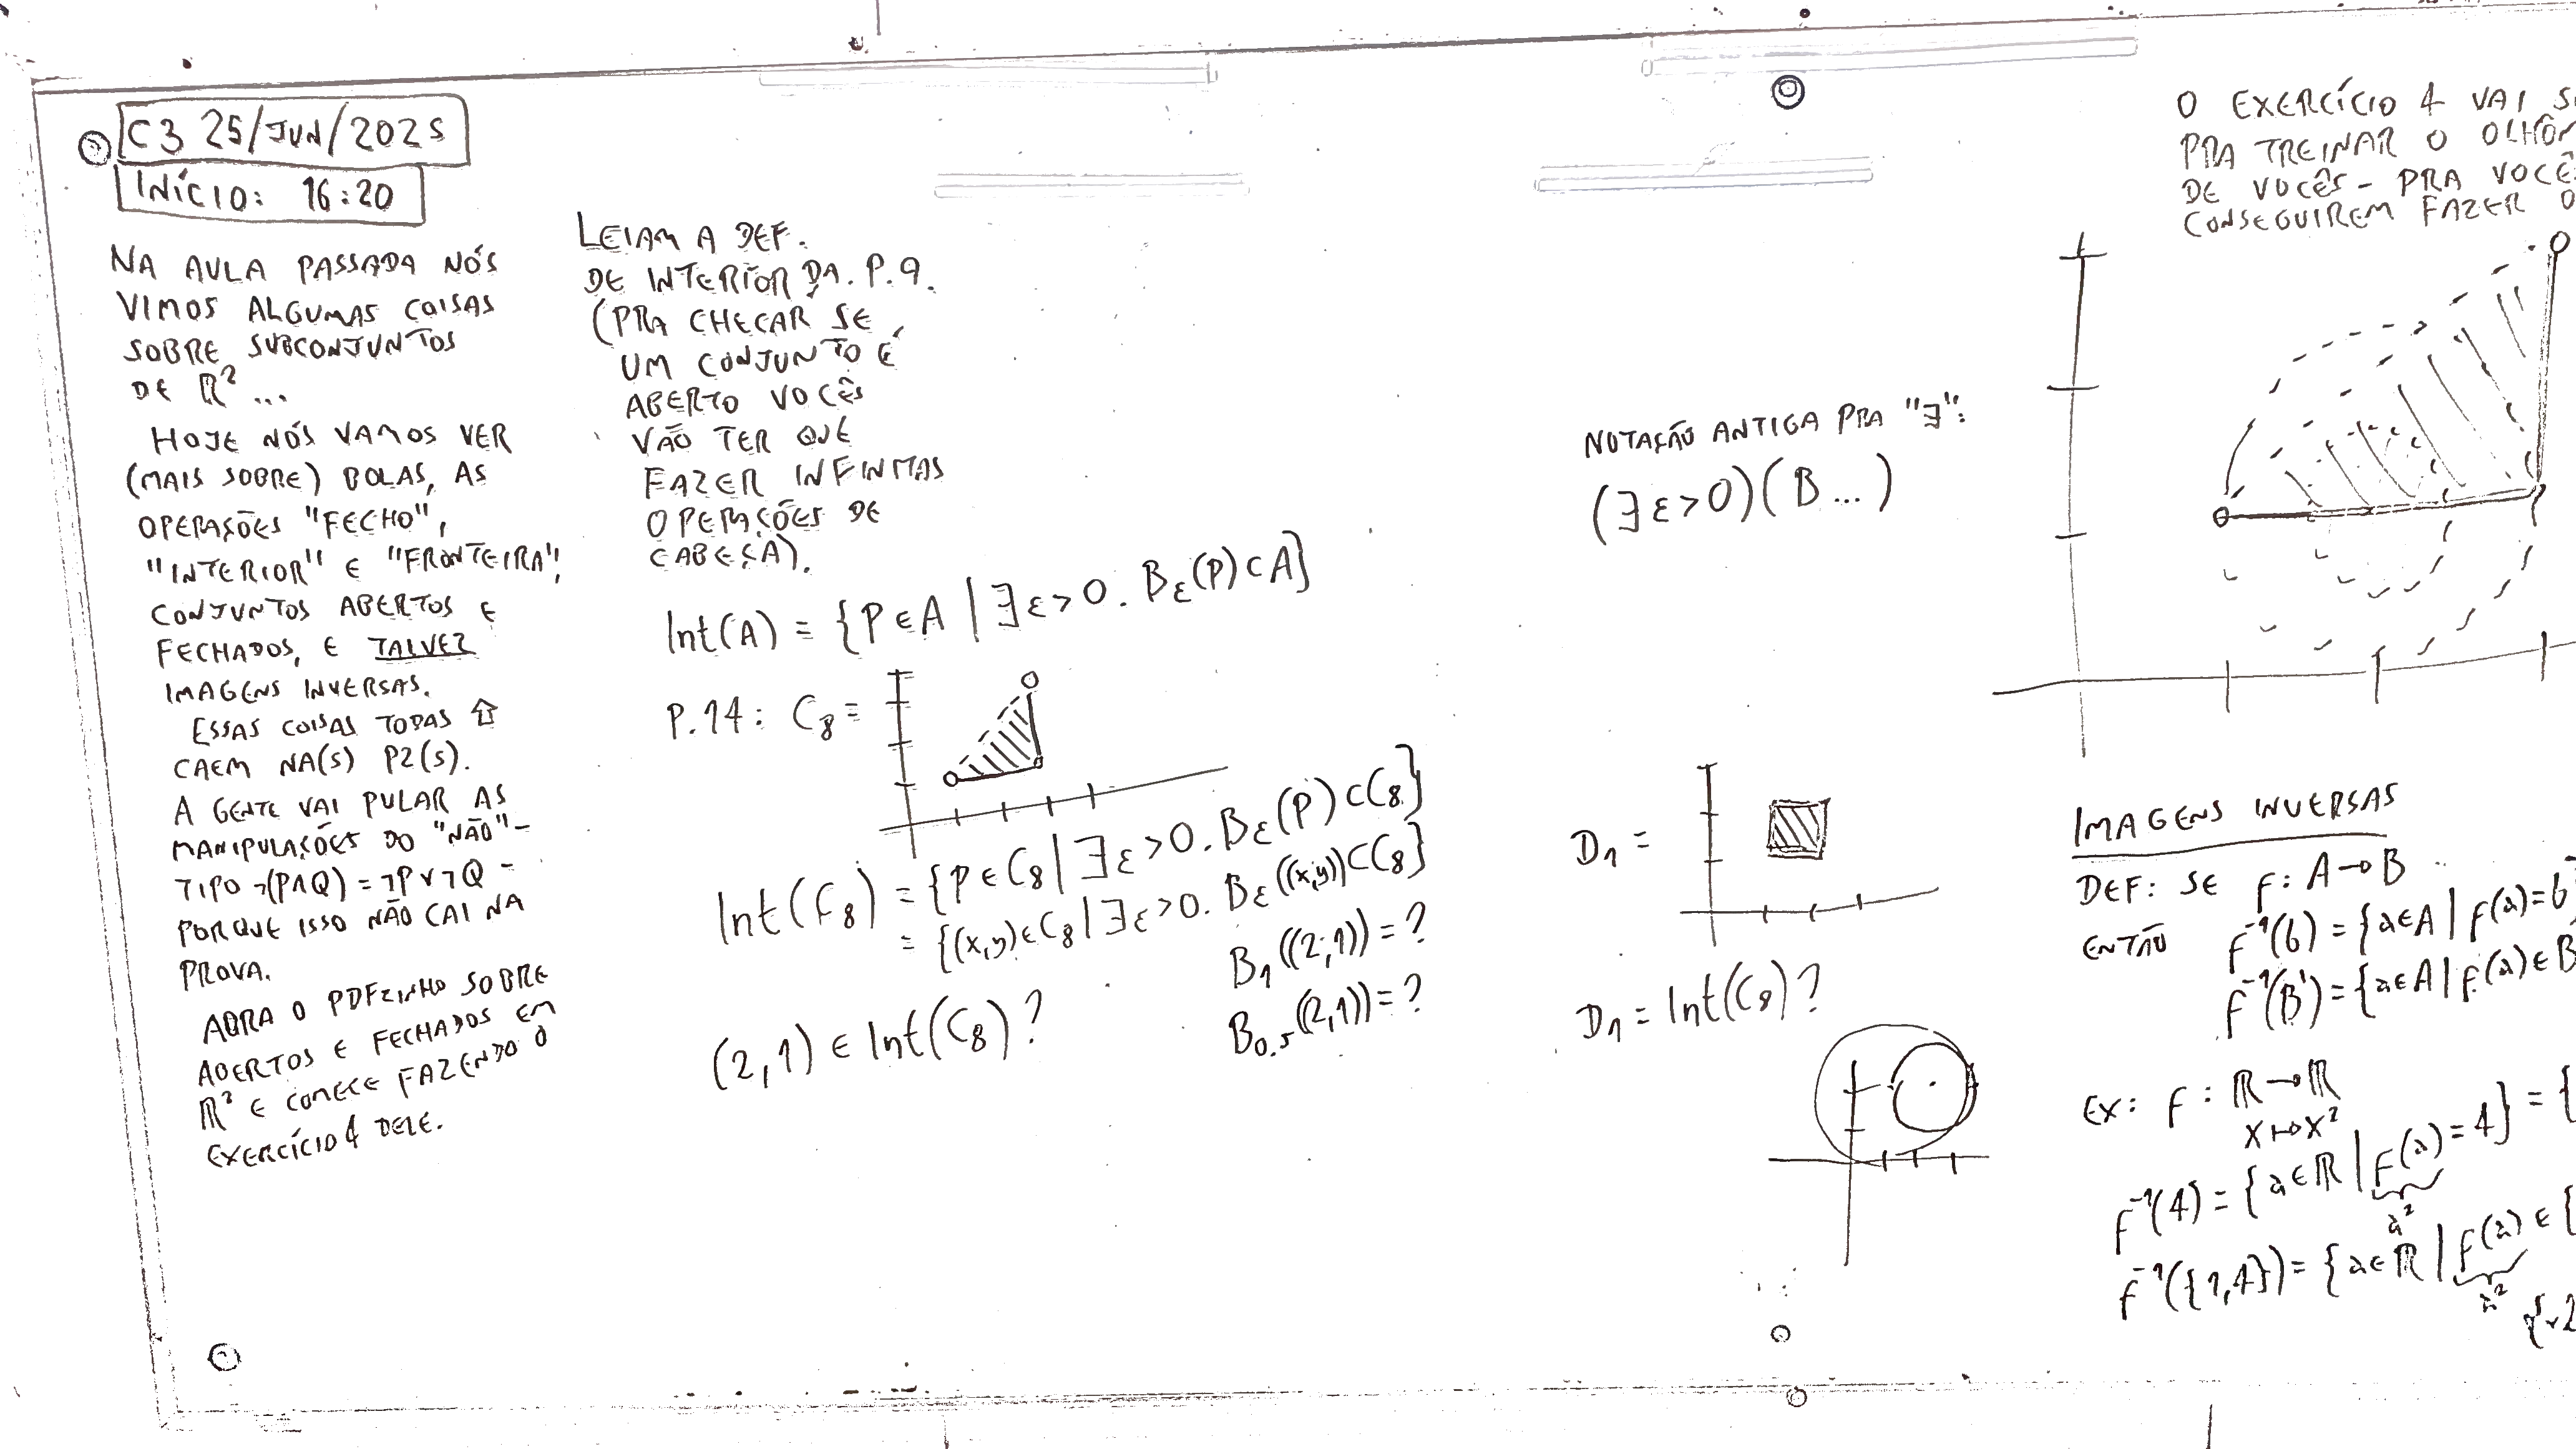 C3 25/JUN/2025
INÍCIO: 16:20
NA AULA PASSADA NÓS
VIMOS ALGUMAS COISAS
SOBRE SUBCONJUNTOS
DE ℝ² ...
HOJE NÓS VAMOS VER
(MAIS SOBRE) BOLAS, AS
OPERAÇÕES "FECHO",
"INTERIOR" E "FRONTEIRA",
CONJUNTOS ABERTOS E
FECHADOS, E TALVEZ
IMAGENS INVERSAS.
ESSAS COISAS TODAS ⇧
CAEM NA(S) P2(S).
A GENTE VAI PULAR AS
MANIPULAÇÕES DO "NÃO" –
TIPO ¬(P∧Q) = ¬P∨¬Q –
PORQUE ISSO NÃO CAI NA
PROVA.
ABRA O PDFZINHO SOBRE
ABERTOS E FECHADOS EM
ℝ² E COMECE FAZENDO O
EXERCÍCIO 4 DELE.
LEIAM A DEF.
DE INTERIOR DA P.9.
(PRA CHECAR SE
UM CONJUNTO É
ABERTO VOCÊS
VÃO TER QUE
FAZER INFINITAS
OPERAÇÕES DE
CABEÇA).
Int(A) = {P∈A | ∃ε>0. Bε(P)⊂A}
P.14: C₈ =
Int(C₈) = {P∈C₈ | ∃ε>0. Bε(P)⊂C₈}
= {(x,y)∈C₈ | ∃ε>0. Bε((x,y))⊂C₈}
B₁((2,1)) = ?
B₀.₅((2,1)) = ?
(2,1) ∈ Int(C₈)?
NOTAÇÃO ANTIGA PRA "∃":
(∃ε>0)(B...)
D₁ =
D₁ = Int(C₈)?
O EXERCÍCIO 4 VAI
PRA TREINAR O
DE VOCÊS – PRA
CONSEGUIREM FAZER
IMAGENS INVERSAS
DEF: SE f: A→B
ENTÃO f⁻¹(b) = {a∈A | f(a)=b
f⁻¹(B') = {a∈A | f(a)∈B
EX: f: ℝ→ℝ
x↦x²
f⁻¹(4) = {a∈ℝ | f(a)=4} = {
a²
f⁻¹({1,4}) = {a∈ℝ | f(a)∈{
a²